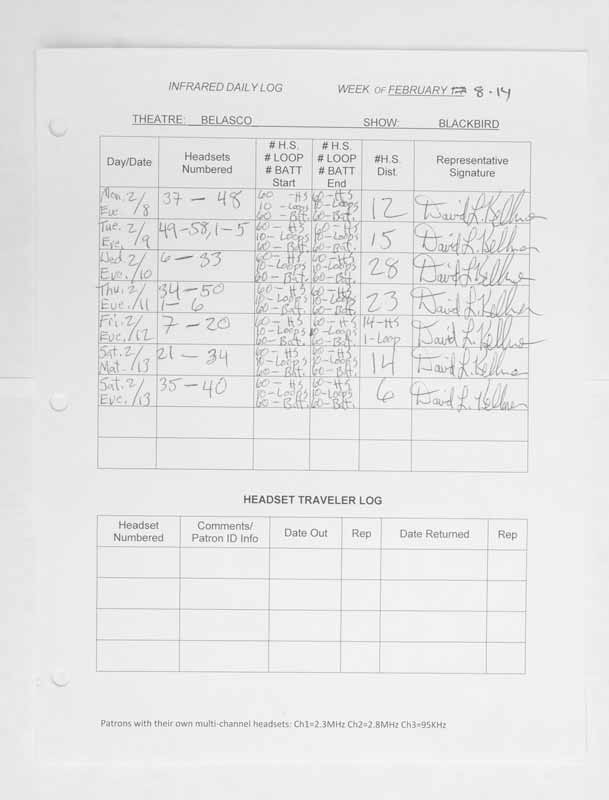 INFRARED DAILY LOG WEEK OF FEBRUARY 8-14
THEATRE: BELASCO SHOW: BLACKBIRD
Day/Date Headsets Numbered # H.S. # LOOP # BATT Start # H.S. # LOOP # BATT End #H.S. Dist. Representative Signature
Mon. 2/8 Eve 37 - 48 60 - HS 10 - Loops 60 - Batt. 60 - HS 10 - Loops 60 - Batt. 12 David L. Kellner
Tue. 2/9 Eve. 49-58, 1-5 60 - HS 10 - Loops 60 - Batt. 60 - HS 10 - Loops 60 - Batt. 15 David L. Kellner
Wed. 2/10 Eve. 6 - 33 60 - HS 10 - Loops 60 - Batt. 60 - HS 10 - Loops 60 - Batt. 28 David L. Kellner
Thu. 2/11 Eve. 34-50 1-6 60 - HS 10 - Loops 60 - Batt. 60 - HS 10 - Loops 60 - Batt. 23 David L. Kellner
Fri. 2/12 Eve. 7 - 20 60 - HS 10 - Loops 60 - Batt. 60 - HS 10 - Loops 60 - Batt. 14-HS 1-Loop David L. Kellner
Sat. 2/13 Mat. 21 - 34 60 - HS 10 - Loops 60 - Batt. 60 - HS 10 - Loops 60 - Batt. 14 David L. Kellner
Sat. 2/13 Eve. 35 - 40 60 - HS 10 - Loops 60 - Batt. 60 - HS 10 - Loops 60 - Batt. 6 David L. Kellner
HEADSET TRAVELER LOG
Headset Numbered Comments/ Patron ID Info Date Out Rep Date Returned Rep
Patrons with their own multi-channel headsets: Ch1=2.3MHz Ch2=2.8MHz Ch3=95KHz